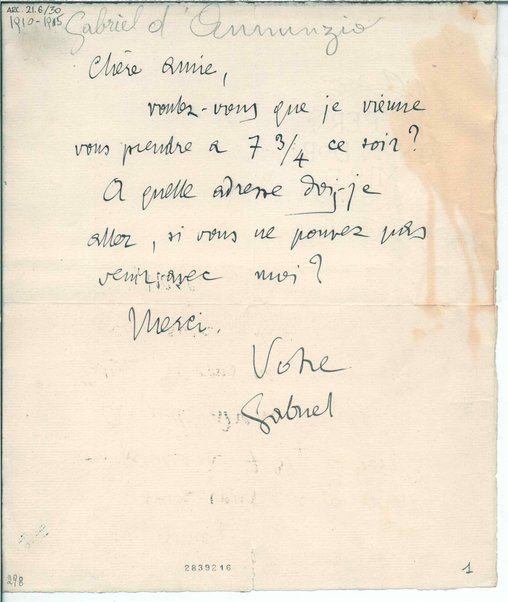 ARC. 21.6/30
1910-1915
Gabriel d'Annunzio
Chère amie,
voulez-vous que je vienne
vous prendre a 7 3/4 ce soir?
A quelle adresse dois-je
aller, si vous ne pouvez pas
venir avec moi?
Merci.
Votre
Gabriel
2839216
1
298